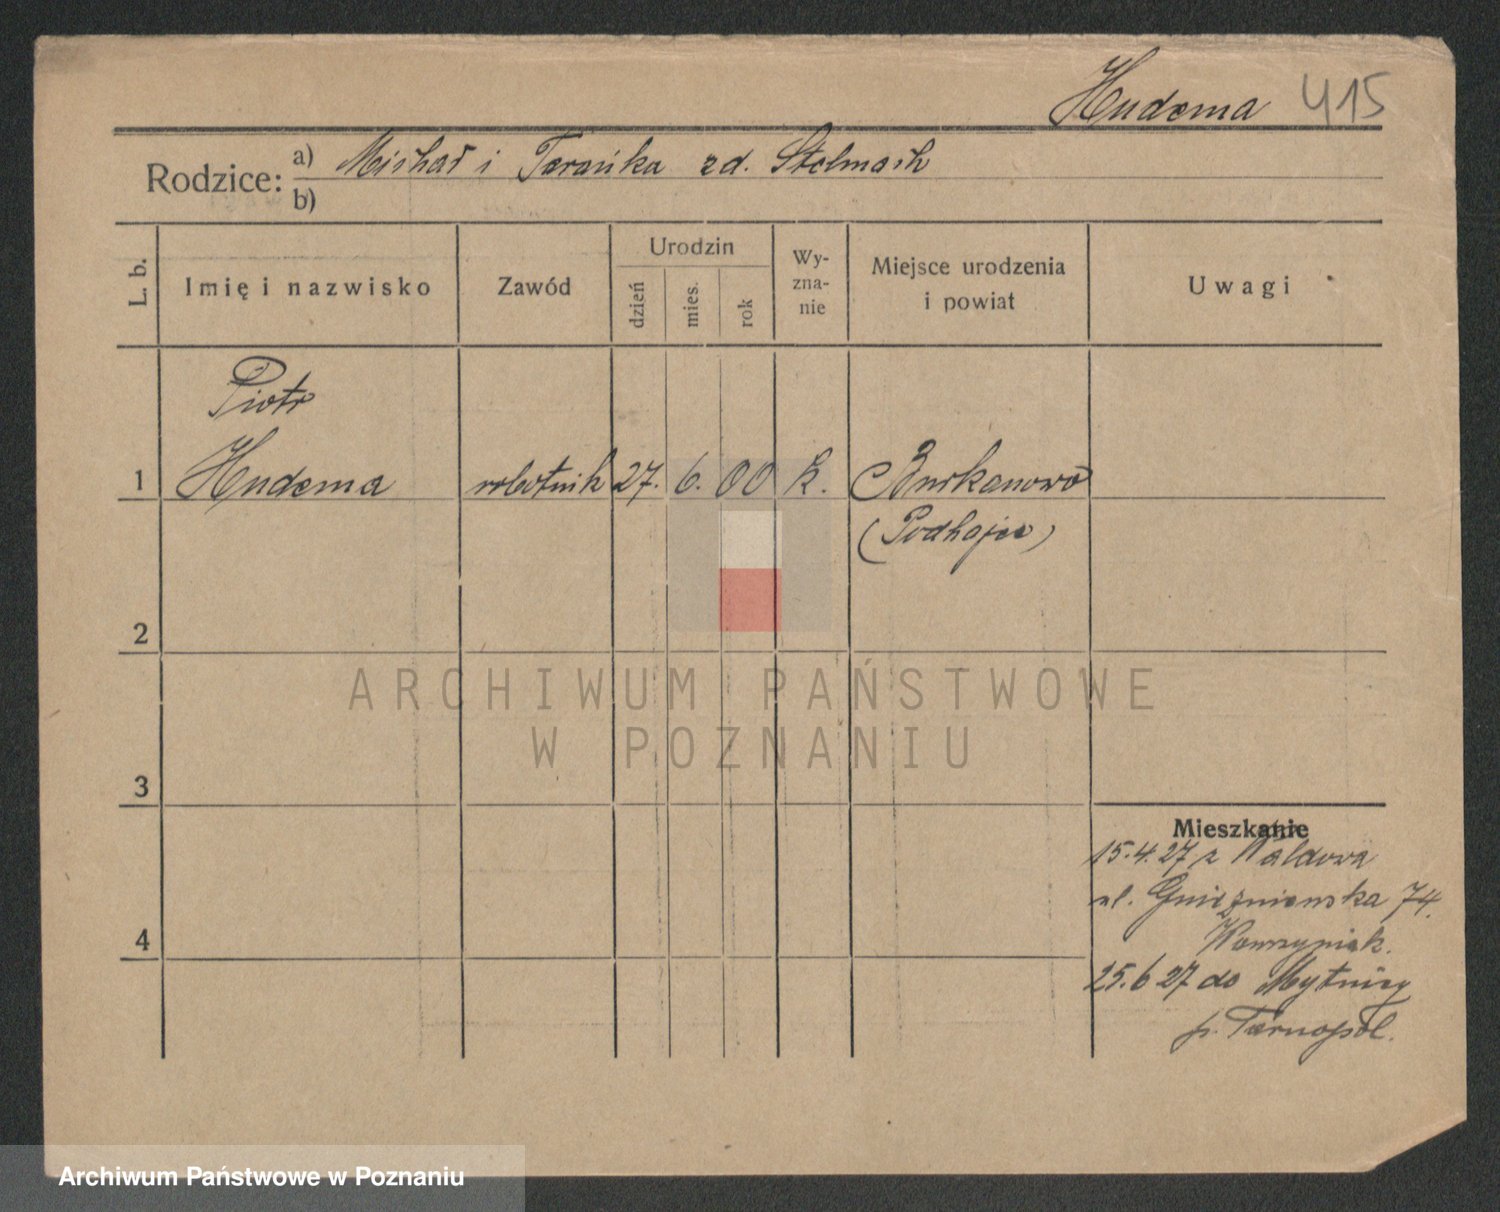 Hudema 415
Rodzice: a) Michał i Torańka zd. Stelmach
b)
L. b. Imię i nazwisko Zawód Urodzin dzień mies. rok Wy- zna- nie Miejsce urodzenia i powiat Uwagi
Piotr
1 Hudema robotnik 27. 6. 00 k. Burkanowo
(Podhajce)
2
ARCHIWUM PAŃSTWOWE
W POZNANIU
3
Mieszkanie
15.4.27 z Wałdowa
ul. Gnieźnieńska 74.
4
25.6 27 do Mytnicy
p. Tarnopol.
Archiwum Państwowe w Poznaniu